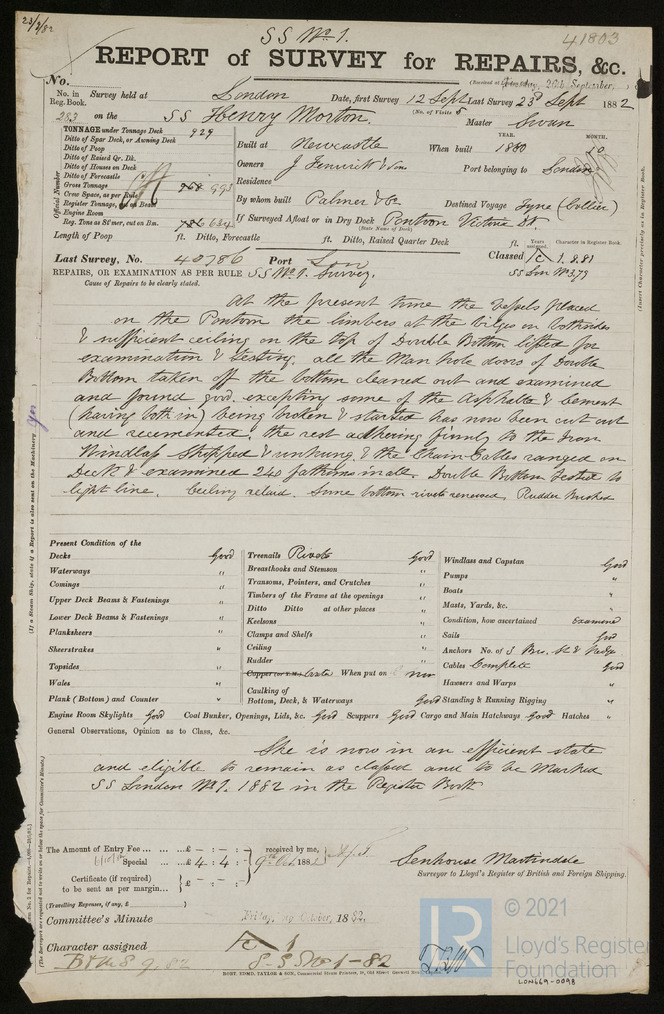 23/9/82
SS No 1.
41803
REPORT of SURVEY for REPAIRS, &c.
No.
(Received at
No. in Reg. Book. Survey held at London Date, first Survey 12 Sept Last Survey 23d Sept 1882
(No. of Visits
283 on the SS Henry Morton. Master Swan
TONNAGE under Tonnage Deck 929
Ditto of Spar Deck, or Awning Deck
Ditto of Poop
Ditto of Raised Qr. Dk.
Ditto of Houses on Deck
Ditto of Forecastle
Gross Tonnage 968 993
Crew Space, as per Rule
Register Tonnage, cut on Beam
Engine Room
Reg. Tons as St'mer, cut on Bm. 786 634
Official Number
YEAR. MONTH.
Built at Newcastle When built 1860 10
Owners J Fenwick & Son
Residence Port belonging to London
By whom built Palmer & Co Destined Voyage Tyne (Collier)
If Surveyed Afloat or in Dry Dock Pontoon Victoria Dk.
(State Name of Dock)
Length of Poop ft. Ditto, Forecastle ft. Ditto, Raised Quarter Deck ft.
Years assigned. Character in Register Book.
Last Survey, No. 40786 Port Lon Classed 1. 8.81
SS Lon No 3.79
REPAIRS, OR EXAMINATION AS PER RULE SS No 1. Survey.
Cause of Repairs to be clearly stated.
At the present time the vessel placed
on the Pontoon the limbers at the bilges on both sides
& sufficient ceiling on the top of Double Bottom lifted for
examination & testing. all the Man hole doors of Double
Bottom taken off the bottom cleaned out and examined
and found good. excepting some of the Asphalte & cement
(having both in) being broken & started has now been cut out
and recemented, the rest adhering firmly to the Iron
Windlass stripped & unhung, & the Chain Cables ranged on
Deck & examined 240 fathoms in all. Double Bottom tested to
light line. Ceiling relaid. Some bottom rivets renewed, Rudder Bushed
Present Condition of the
Decks Good
Waterways "
Comings "
Upper Deck Beams & Fastenings "
Lower Deck Beams & Fastenings "
Planksheers "
Sheerstrakes "
Topsides "
Wales "
Plank (Bottom) and Counter "
Treenails Rivets Good
Breasthooks and Stemson "
Transoms, Pointers, and Crutches "
Timbers of the Frame at the openings "
Ditto Ditto at other places "
Keelsons "
Clamps and Shelfs "
Ceiling "
Rudder "
When put on now
Caulking of
Bottom, Deck, & Waterways Good
Windlass and Capstan Good
Pumps "
Boats "
Masts, Yards, &c. "
Condition, how ascertained Examined
Sails Good
Anchors No. of 3 Bow. St &
Cables Complete Good
Hawsers and Warps "
Standing & Running Rigging "
Engine Room Skylights Good Coal Bunker, Openings, Lids, &c. Good Scuppers Good Cargo and Main Hatchways Good Hatches "
General Observations, Opinion as to Class, &c.
She is now in an efficient state
and eligible to remain as classed and to be marked
SS London No 1. 1882 in the Register Book
The Amount of Entry Fee ... £ - : - :
Special ... £ 4 : 4 :
received by me,
9th Oct 1882
Certificate (if required)
to be sent as per margin... £ - : - :
(Travelling Expenses, if any, £ )
Senhouse Martindale
Surveyor to Lloyd's Register of British and Foreign Shipping.
Committee's Minute October, 1882.
Character assigned 1
S-S No 1-82
B&MS 9.82
ROBT. EDMD. TAYLOR & SON, Commercial Steam Printers, 19, Old Street, Goswell Road
(If a Steam Ship, state if a Report is also sent on the Machinery Yes
(Insert Character precisely as in Register Book.
(The Surveyors are requested not to write on or below the space for Committee's Minute.)
© 2021
LR
Lloyd's Register
Foundation
LON669-0098